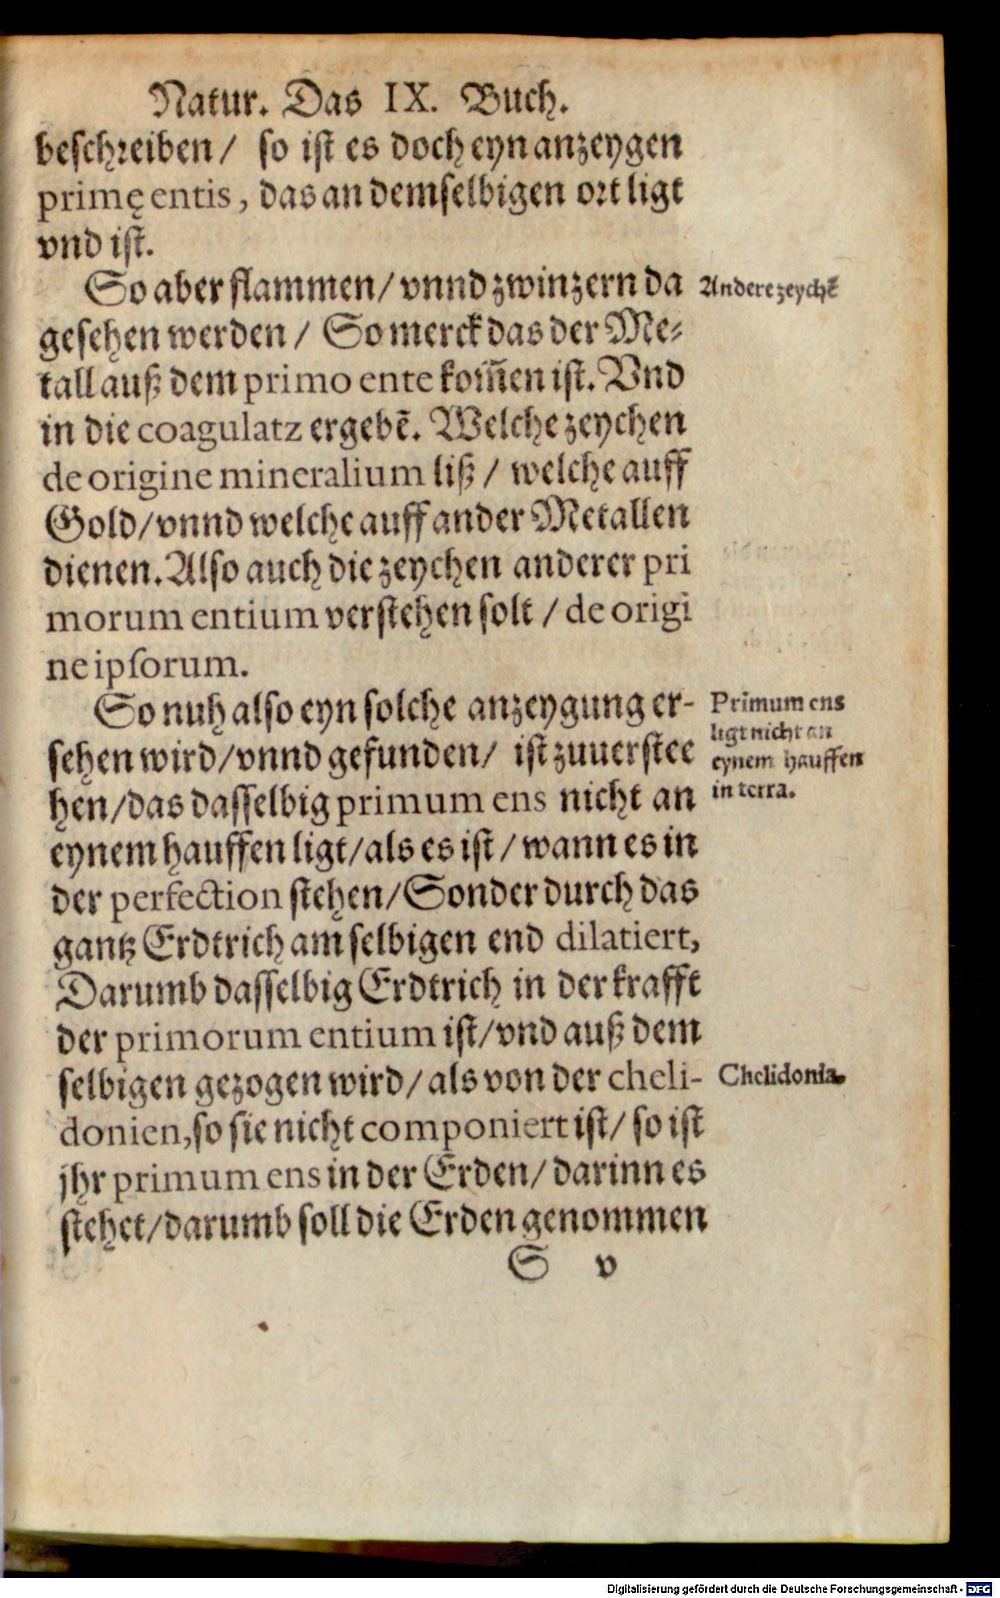 Natur. Das IX. Buch.
beschreiben/ so ist es doch eyn anzeygen
primę entis, das an demselbigen ort ligt
vnd ist.
So aber flammen/ vnnd zwinzern da
Andere zeychẽ
gesehen werden / So merck das der Me⸗
tall auß dem primo ente kom̃en ist. Vnd
in die coagulatz ergebẽ. Welche zeychen
de origine mineralium liß / welche auff
Gold/ vnnd welche auff ander Metallen
dienen. Also auch die zeychen anderer pri
morum entium verstehen solt / de origi
ne ipsorum.
So nuh also eyn solche anzeygung er-
sehen wird/ vnnd gefunden/ ist zuuerstee
hen/ das dasselbig primum ens nicht an
eynem hauffen ligt/ als es ist / wann es in
der perfection stehen/ Sonder durch das
gantz Erdtrich am selbigen end dilatiert,
Darumb dasselbig Erdtrich in der krafft
der primorum entium ist/ vnd auß dem
selbigen gezogen wird/ als von der cheli-
donien, so sie nicht componiert ist/ so ist
jhr primum ens in der Erden/ darinn es
stehet/ darumb soll die Erden genommen
Primum ens
ligt nicht an
eynem hauffen
in terra.
Chelidonia.
S v
Digitalisierung gefördert durch die Deutsche Forschungsgemeinschaft - DFG